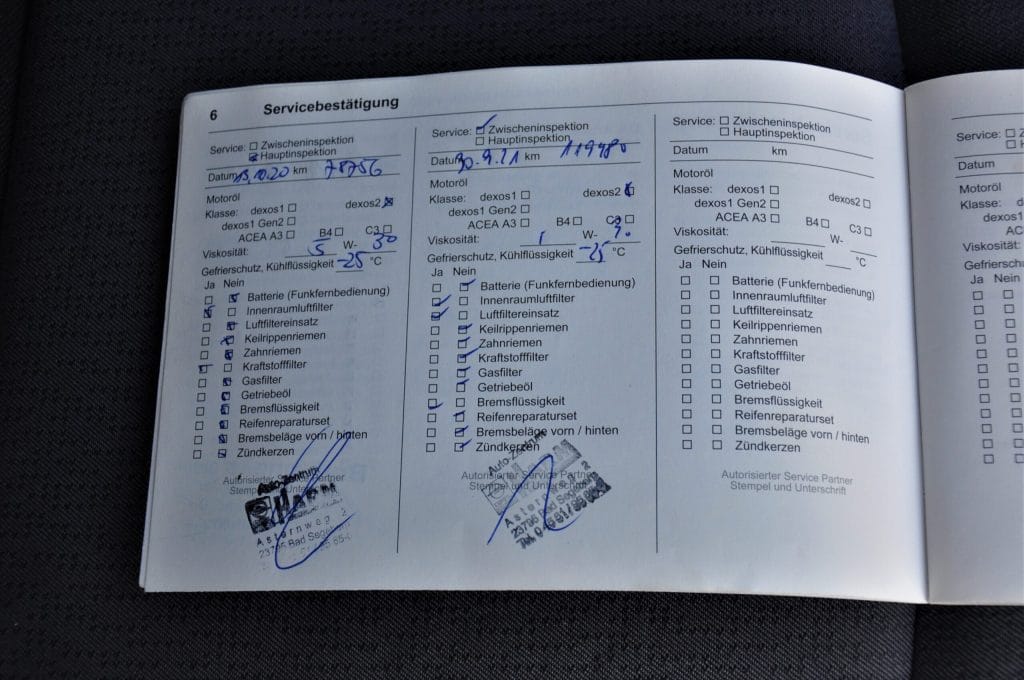 6 Servicebestätigung
Service: Zwischeninspektion
Hauptinspektion
Datum 13.10.20 km 78756
Motoröl
Klasse: dexos1 dexos2
dexos1 Gen2
ACEA A3 B4 C3
Viskosität: 5 W- 30
Gefrierschutz, Kühlflüssigkeit -25 °C
Ja Nein
Batterie (Funkfernbedienung)
Innenraumluftfilter
Luftfiltereinsatz
Keilrippenriemen
Zahnriemen
Kraftstofffilter
Gasfilter
Getriebeöl
Bremsflüssigkeit
Reifenreparaturset
Bremsbeläge vorn / hinten
Zündkerzen
Autorisierter Service Partner
Stempel und Unterschrift
Auto-Zentrum
Asternweg 2
23795 Bad Segeberg
Service: Zwischeninspektion
Hauptinspektion
Datum 30.9.21 km 119480
Motoröl
Klasse: dexos1 dexos2
dexos1 Gen2
ACEA A3 B4 C3
Viskosität: W-
Gefrierschutz, Kühlflüssigkeit -25 °C
Ja Nein
Batterie (Funkfernbedienung)
Innenraumluftfilter
Luftfiltereinsatz
Keilrippenriemen
Zahnriemen
Kraftstofffilter
Gasfilter
Getriebeöl
Bremsflüssigkeit
Reifenreparaturset
Bremsbeläge vorn / hinten
Zündkerzen
Autorisierter Service Partner
Stempel und Unterschrift
Auto-Zentrum
Asternweg 2
23795 Bad Segeberg
Service: Zwischeninspektion
Hauptinspektion
Datum km
Motoröl
Klasse: dexos1 dexos2
dexos1 Gen2
ACEA A3 B4 C3
Viskosität: W-
Gefrierschutz, Kühlflüssigkeit °C
Ja Nein
Batterie (Funkfernbedienung)
Innenraumluftfilter
Luftfiltereinsatz
Keilrippenriemen
Zahnriemen
Kraftstofffilter
Gasfilter
Getriebeöl
Bremsflüssigkeit
Reifenreparaturset
Bremsbeläge vorn / hinten
Zündkerzen
Autorisierter Service Partner
Stempel und Unterschrift
Service:
Datum
Motoröl
Klasse: dexos1
dexos1
ACEA
Viskosität:
Gefrierschutz
Ja Nein